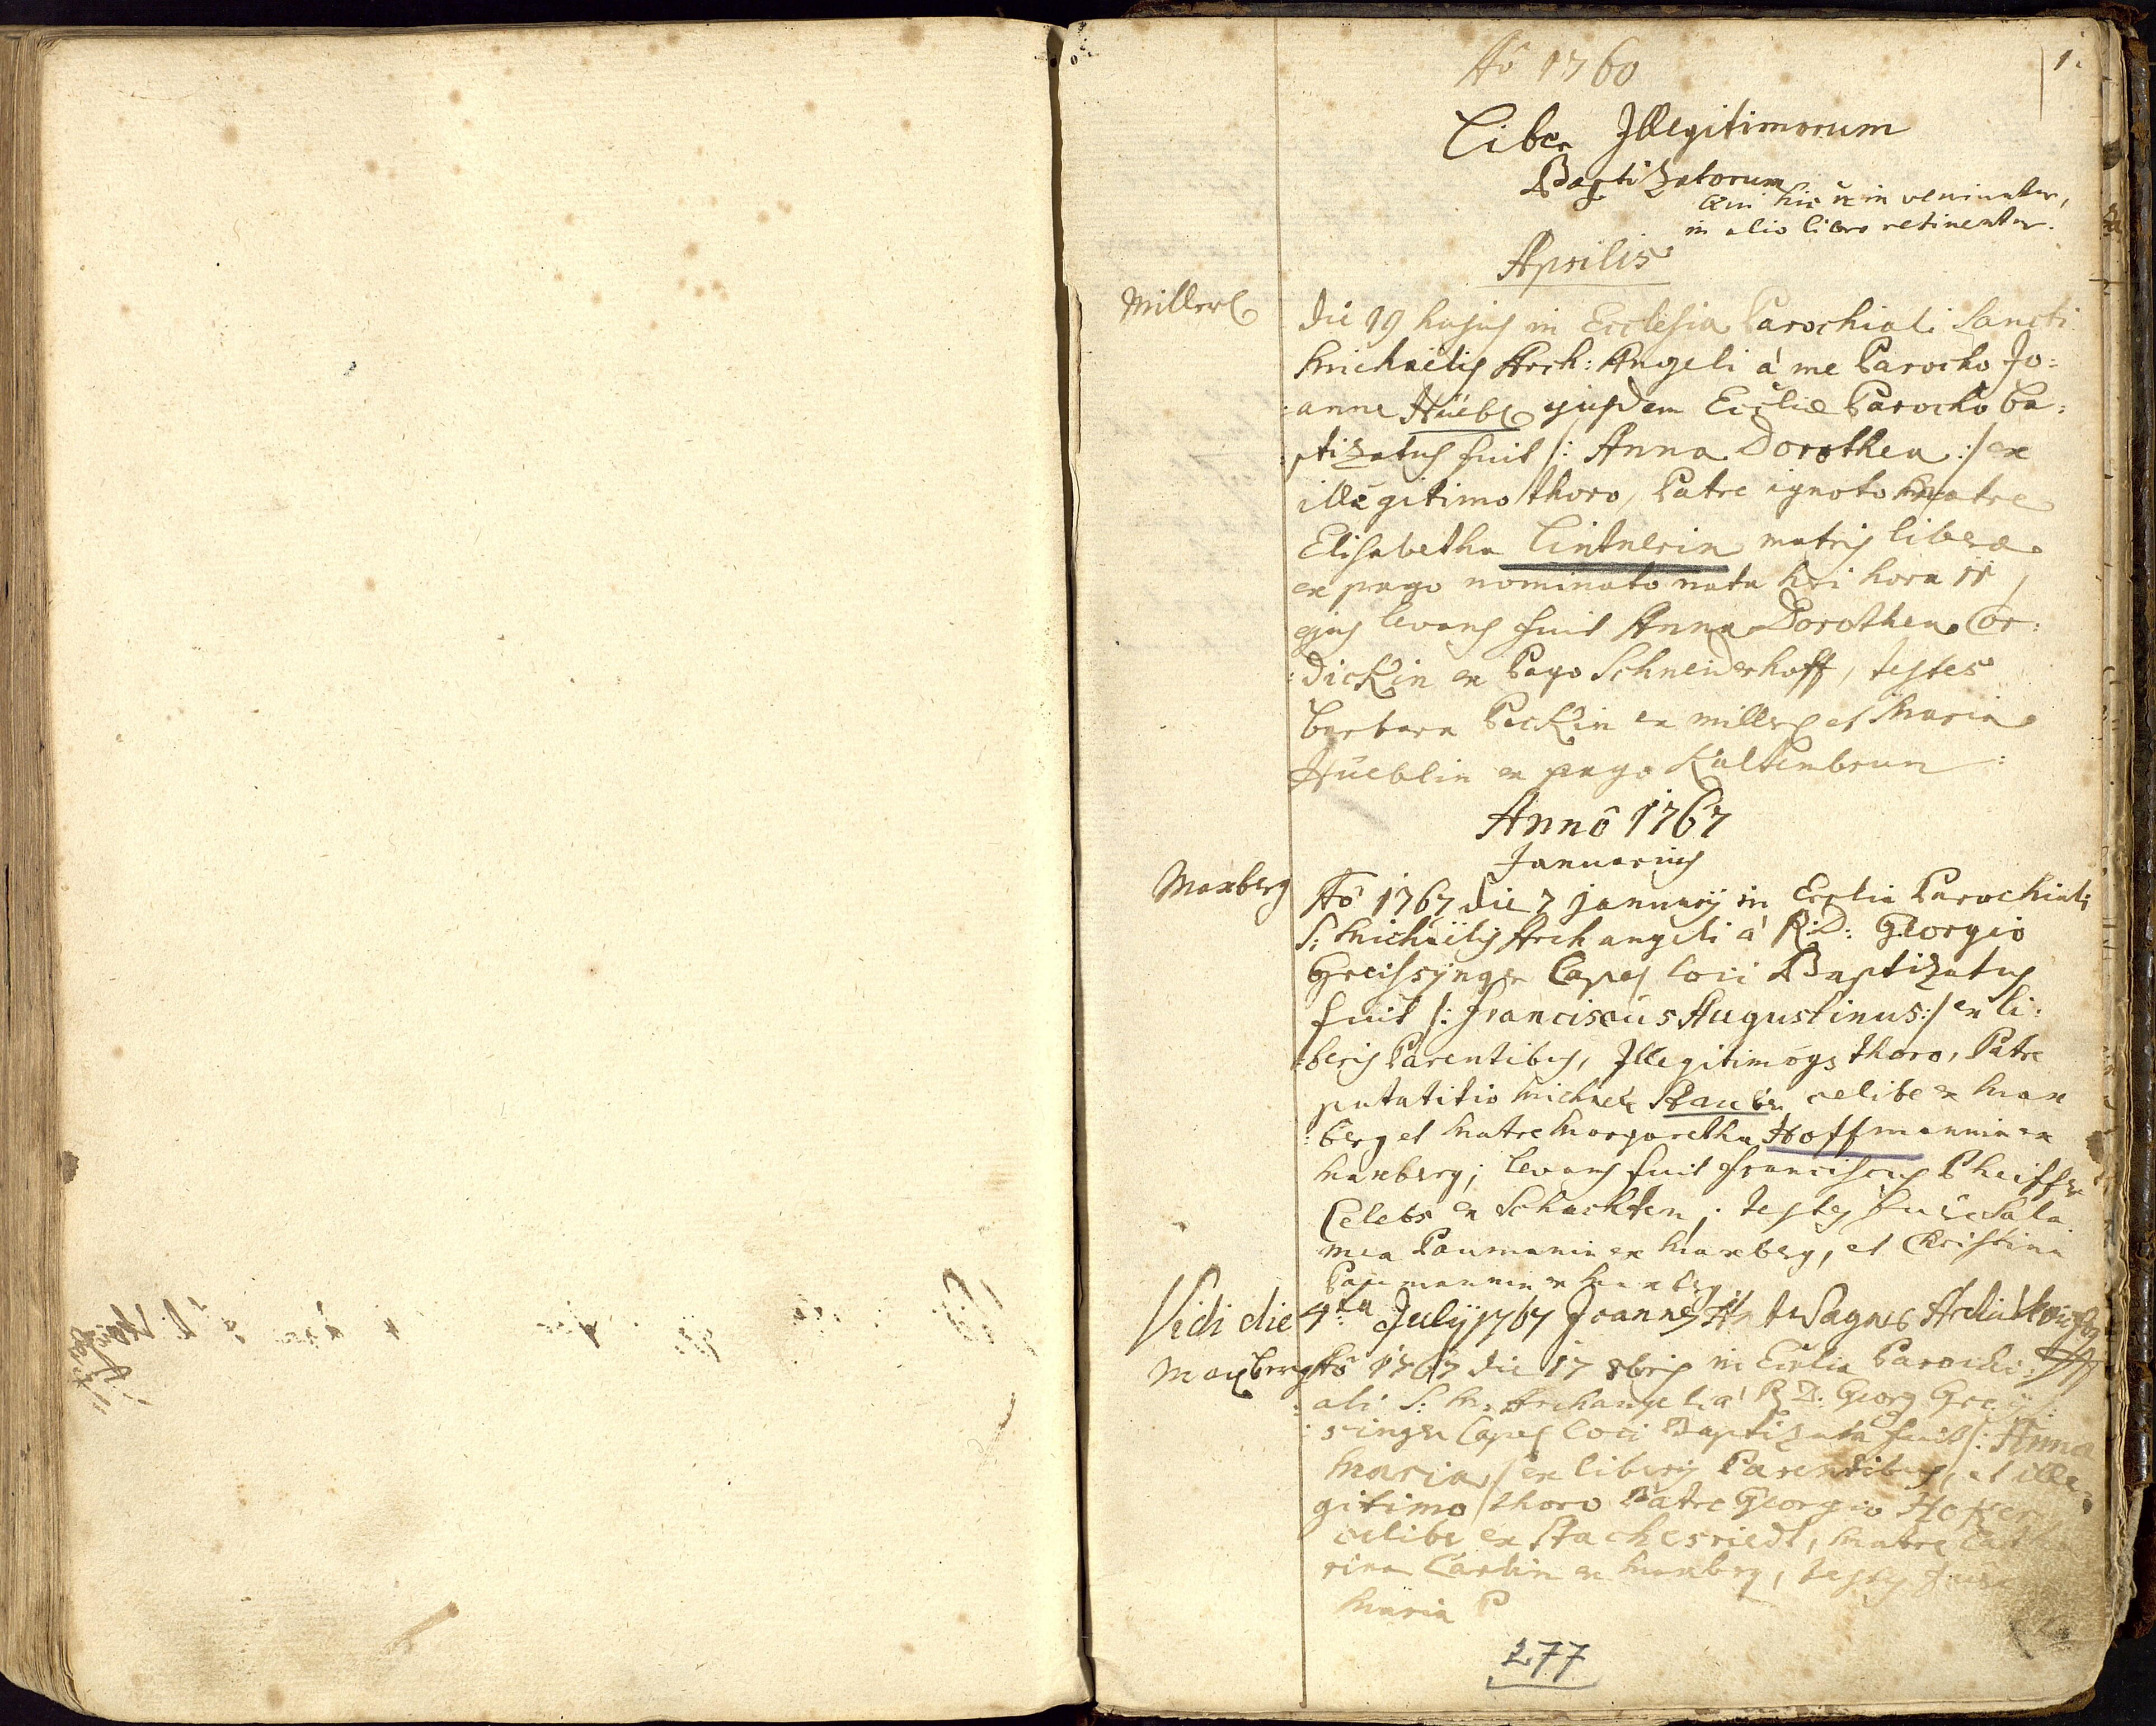 1.
Aô 1760
Liber Illegitimorum
Baptizatorum
Qui hic n̄ in veniuntur,
in alio libro retinentur.
Aprilis
Millerl
Die 19 hujus in Ecclesia Parochiali Sancti
Michaëlis Arch: Angeli à me Parocho Jo:
:anne Hüebl ejusdem Eccliæ Parocho ba:
:ptizatus fuit /: Anna Dorothea :/ ex
illegitimo thoro, Patre ignoto Matre
Elisabetha Lintnerin matris liberæ
ex pago nominato nata heri hora 11,
ejus levans fuit Anna Dorothea Cor:
:dickin ex Pago Schneiderhoff, testes
Barbara Peckin ex millerl et Maria
Hüeblin ex pago Kaltenbrun :
Annô 1767
Januarius
Maxberg
Aô 1767 die 7 januarij in Ecclia Parochiali
S: Michaëlis Archangeli à R:D: Georgio
Greissynger Capel loci Baptizatus
fuit /: Franciscus Augustinus :/ ex li:
:beris Parentibus, Illegitimoqs thoro, Patre
putatitio Michaele Stauber celibe ex Max
:berg et Matre Margaretha Hoffmannin ex
Maxberg; levans fuit Franciscus Pheiffer
Celebs ex Schachten; testes fuêre Sala
mea Paumanin ex Maxberg, et Christina
Paumannin ex Maxberg
Vidi die 4ta Julij 1767 Joannes
Maxberg
Aô 1767 die 17 8bris in Ecclia Parochi:
:ali S: M: Archangeli à R:D: Georg Greij:
:singer Capel loci Baptizata fuit /: Anna
Maria :/ ex liberis Parentibus, et ille:
gitimo thoro Patre Georgio
celibe ex Stachesriedt, Matre Catha
rina Carlin ex Maxberg, testes fuêre
Maria P
277